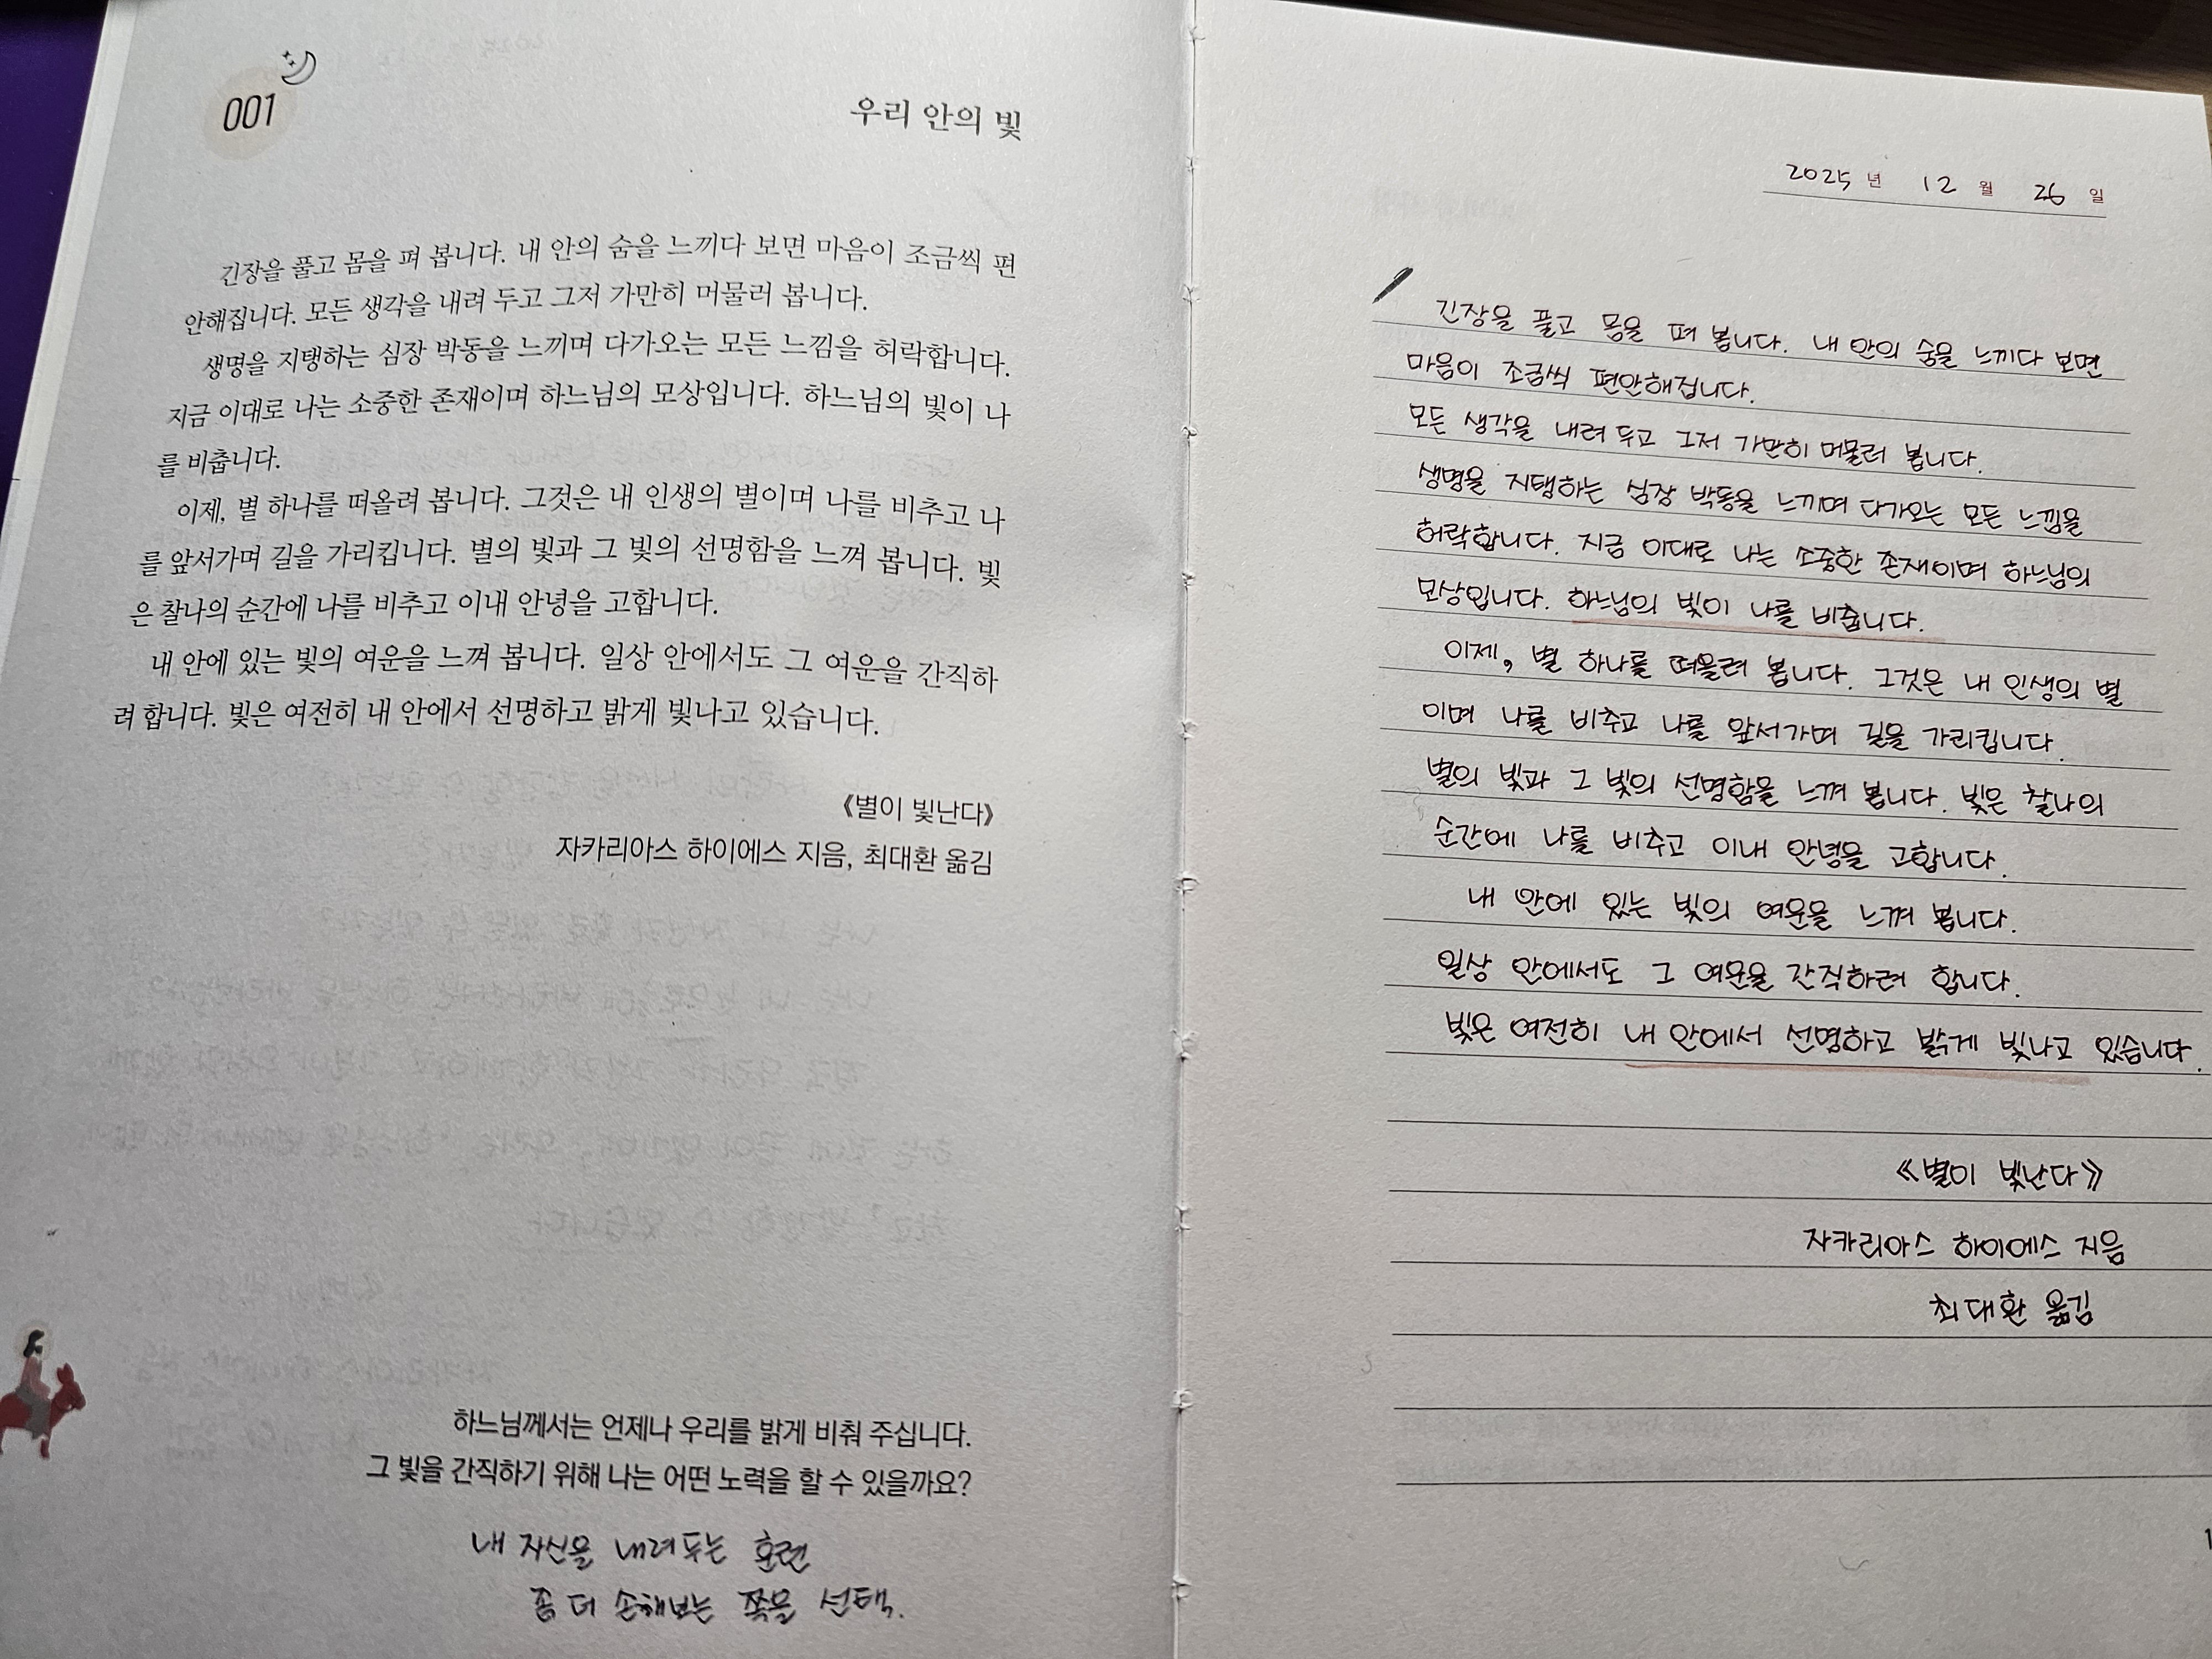 001
우리 안의 빛
긴장을 풀고 몸을 펴 봅니다. 내 안의 숨을 느끼다 보면 마음이 조금씩 편
안해집니다. 모든 생각을 내려 두고 그저 가만히 머물러 봅니다.
생명을 지탱하는 심장 박동을 느끼며 다가오는 모든 느낌을 허락합니다.
지금 이대로 나는 소중한 존재이며 하느님의 모상입니다. 하느님의 빛이 나
를 비춥니다.
이제, 별 하나를 떠올려 봅니다. 그것은 내 인생의 별이며 나를 비추고 나
를 앞서가며 길을 가리킵니다. 별의 빛과 그 빛의 선명함을 느껴 봅니다. 빛
은 찰나의 순간에 나를 비추고 이내 안녕을 고합니다.
내 안에 있는 빛의 여운을 느껴 봅니다. 일상 안에서도 그 여운을 간직하
려 합니다. 빛은 여전히 내 안에서 선명하고 밝게 빛나고 있습니다.
《별이 빛난다》
자카리아스 하이에스 지음, 최대환 옮김
하느님께서는 언제나 우리를 밝게 비춰 주십니다.
그 빛을 간직하기 위해 나는 어떤 노력을 할 수 있을까요?
내 자신을 내려두는 훈련
좀 더 손해보는 쪽을 선택.
2025년 12월 26일
긴장을 풀고 몸을 펴 봅니다. 내 안의 숨을 느끼다 보면
마음이 조금씩 편안해집니다.
모든 생각을 내려 두고 그저 가만히 머물러 봅니다.
생명을 지탱하는 심장 박동을 느끼며 다가오는 모든 느낌을
허락합니다. 지금 이대로 나는 소중한 존재이며 하느님의
모상입니다. 하느님의 빛이 나를 비춥니다.
이제, 별 하나를 떠올려 봅니다. 그것은 내 인생의 별
이며 나를 비추고 나를 앞서가며 길을 가리킵니다.
별의 빛과 그 빛의 선명함을 느껴 봅니다. 빛은 찰나의
순간에 나를 비추고 이내 안녕을 고합니다.
내 안에 있는 빛의 여운을 느껴 봅니다.
일상 안에서도 그 여운을 간직하려 합니다.
빛은 여전히 내 안에서 선명하고 밝게 빛나고 있습니다.
《별이 빛난다》
자카리아스 하이에스 지음
최대환 옮김